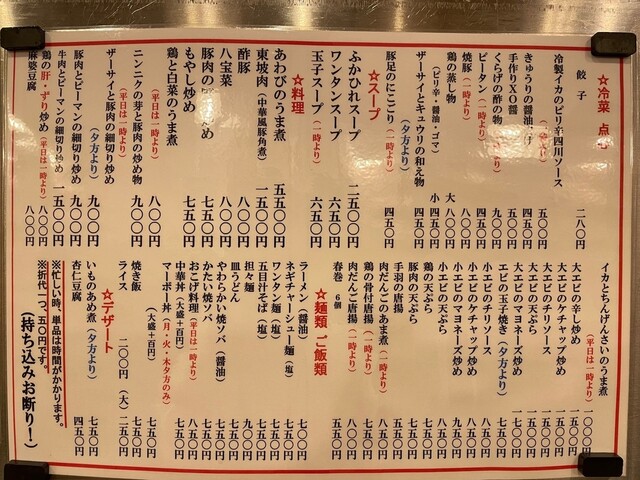 ☆冷菜 点心
餃子 二八〇円
冷製イカのピリ辛四川ソース
(一時より) 五〇〇円
きゅうりの醤油 四五〇円
手作りXO醤 五〇〇円
くらげの酢の物(一時より) 九〇〇円
ピータン(一時より) 四五〇円
焼豚(一時より) 八〇〇円
鶏の蒸し物 大 八〇〇円
(ピリ辛・醤油・ゴマ) 小 四五〇円
ザーサイとキュウリの和え物(夕方より) 四五〇円
豚足のにこごり(一時より) 四五〇円
☆スープ
ふかひれスープ 二五〇〇円
ワンタンスープ 六五〇円
玉子スープ(一時より) 六五〇円
☆料理
あわびのうま煮 五五〇〇円
東坡肉(中華風豚角煮) 一五〇〇円
酢豚 八〇〇円
八宝菜 八〇〇円
豚肉の 炒め 七五〇円
もやし炒め 七五〇円
鶏と白菜のうま煮
(平日は一時より) 八〇〇円
ニンニクの芽と豚肉の炒め物 九〇〇円
(平日は一時より)
ザーサイと豚肉の細切り炒め
(夕方より) 九〇〇円
豚肉とピーマンの細切り炒め 九〇〇円
牛肉とピーマンの細切り炒め 一五〇〇円
鶏の肝・ずり炒め(平日は一時より) 八〇〇円
麻婆豆腐 八〇〇円
イカとちんげんさいのうま煮
(平日は一時より) 一〇〇〇円
大エビの辛し炒め 一五〇〇円
大エビのケチャップ炒め 一五〇〇円
大エビのチリソース 一五〇〇円
大エビの天ぷら 一五〇〇円
大エビのマヨネーズ炒め 一七〇〇円
エビの玉子焼き(夕方より) 七五〇円
小エビのチリソース 八五〇円
小エビのケチャップ炒め 八五〇円
小エビのマヨネーズ炒め 九五〇円
小エビの天ぷら 八五〇円
鶏の天ぷら 七五〇円
豚肉の天ぷら 七五〇円
手羽の唐揚 五五〇円
肉だんごのあま煮(一時より) 八五〇円
鶏の骨付唐揚(一時より) 八〇〇円
肉だんご唐揚(一時より) 八〇〇円
春巻 6個 五五〇円
☆麺類 ご飯類
ラーメン(醤油) 七〇〇円
ネギチャーシュー麺(塩) 九五〇円
ワンタン麺(塩) 七五〇円
五目汁そば(塩) 七五〇円
担々麺 九〇〇円
皿うどん 七五〇円
やわらかい焼ソバ(醤油) 七五〇円
かたい焼ソバ 七五〇円
おこげ料理(平日は一時より) 八五〇円
中華丼(大盛+百円) 七五〇円
マーボー丼(月・火・木夕方のみ) 七五〇円
(大盛+百円)
焼き飯 七五〇円
ライス 二〇〇円 (大)二五〇円
☆デザート
いものあめ煮(夕方より) 七五〇円
杏仁豆腐 四五〇円
※忙しい時、単品は時間がかかります。
※折代一つ、五〇円です。※
(持ち込みお断り!)